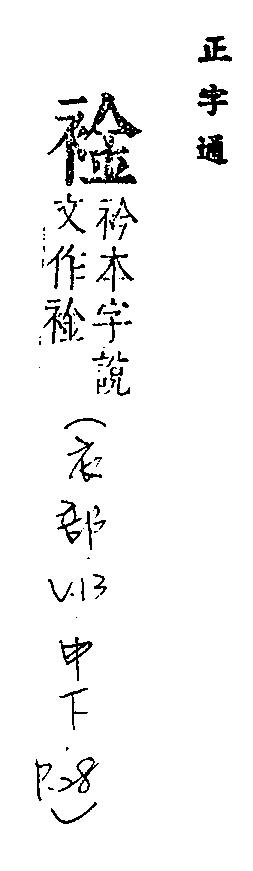 正字通
䘳
衿本字說
文作䘳
(衣部·V.13·申下·P.28)